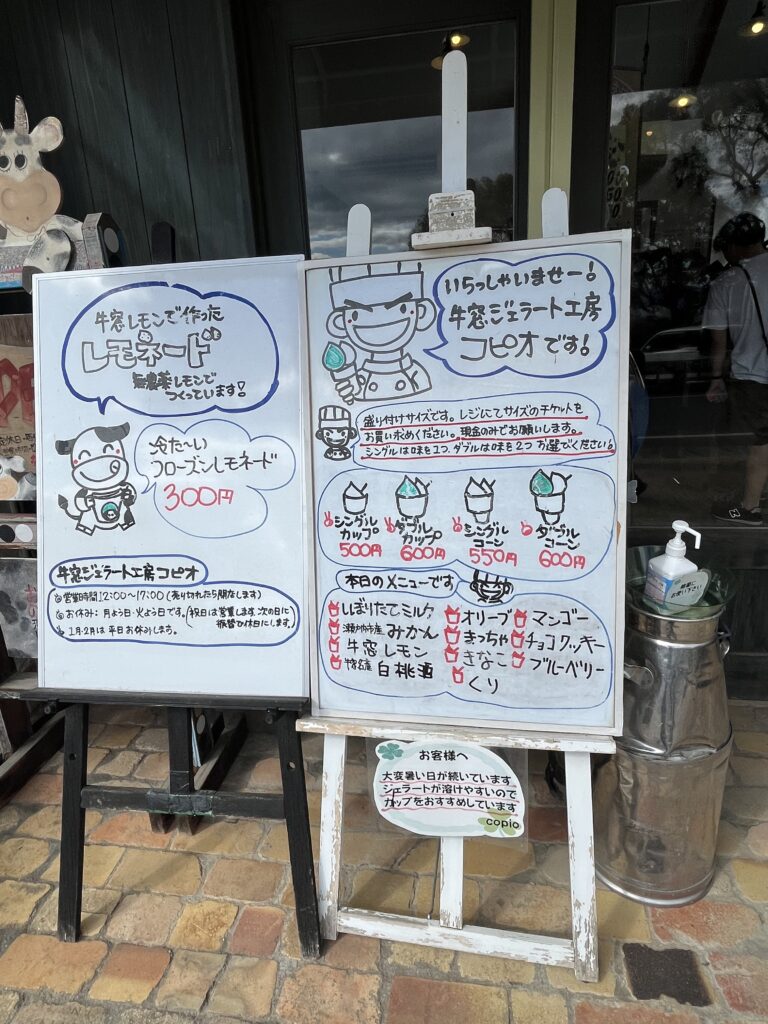 牛窓レモンで作った
レモネード
無農薬レモンで
つくっています!
冷た〜い
フローズンレモネード
300円
牛窓ジェラート工房コピオ
営業時間12:00〜17:00(売り切れたら閉店します)
お休み:月よう日・火よう日です。(祝日は営業します。次の日に
振替で休日にします。)
1月・2月は平日お休みします。
いらっしゃいませー!
牛窓ジェラート工房
コピオです!
盛り付けサイズです。レジにてサイズのチケットを
お買い求めください。現金のみでお願いします。
シングルは味を1つ、ダブルは味を2つお選びください!
シングル
カップ
500円
ダブル
カップ
600円
シングル
コーン
550円
ダブル
コーン
600円
本日のメニューです
しぼりたてミルク
瀬戸内市産みかん
牛窓レモン
白桃酒
オリーブ
まっちゃ
きなこ
くり
マンゴー
チョコクッキー
ブルーベリー
お客様へ
大変暑い日が続いています
ジェラートが溶けやすいので
カップをおすすめしています
copio